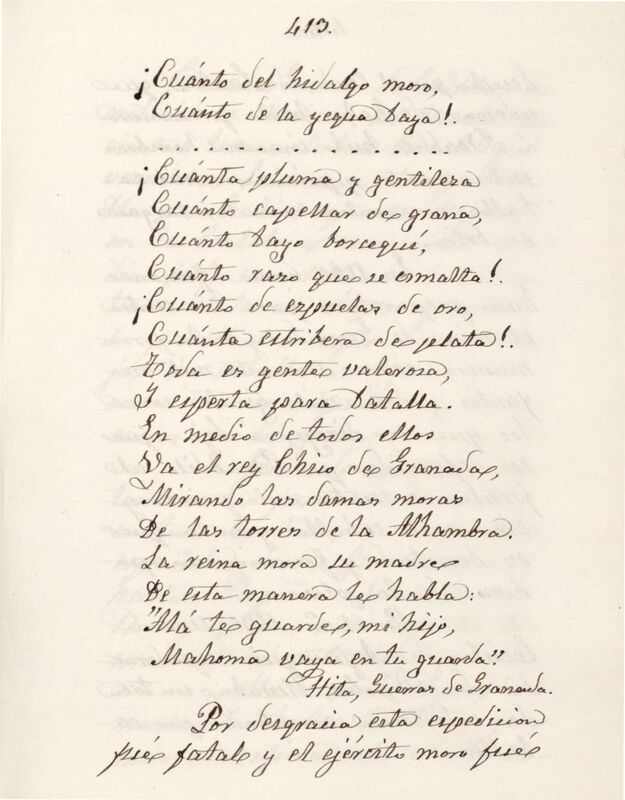 413.
¡Cuánto del hidalgo moro,
Cuánto de la yegua baya!.
. . . . . . . . . . . . . . . .
¡Cuánta pluma y gentileza
Cuánto capellar de grana,
Cuánto bayo borceguí,
Cuánto razo que se esmalta!.
¡Cuánto de ezpuelas de oro,
Cuánta estribera de plata!.
Toda es gente valerosa,
Y esperta para batalla.
En medio de todos ellos
Va el rey Chico de Granada,
Mirando las damas moras
De las torres de la Alhambra.
La reina mora su madre
De esta manera le habla:
"Alá te guarde, mi hijo,
Mahoma vaya en tu guarda".
Hita, Guerras de Granada.
Por desgracia esta espedicion
fué fatal y el ejército moro fué